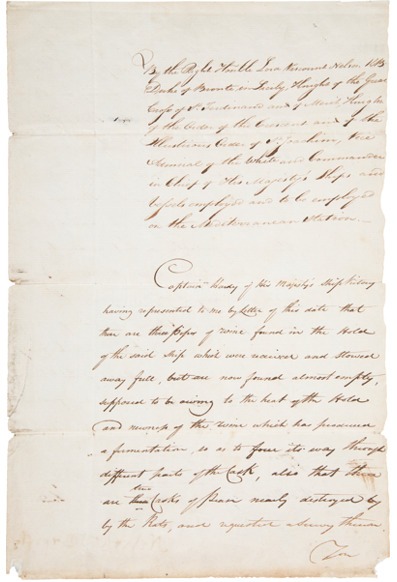 By the Right Honble Lord Viscount Nelson KB
Duke of Bronte in Sicily, Knight of the Great
Cross of St Ferdinand and of Merit, Knight
of the Order of the Crescent and of the
Illustrious Order of St Joachim, Vice
Admiral of the White and Commander
in Chief of His Majesty's Ships and
Vessels employed and to be employed
on the Mediterranean Station.
Captain Hardy of His Majesty's Ship Victory
having represented to me by letter of this date that
there are three Pipes of wine found in the Hold
of the said Ship which were received and stowed
away full, but are now found almost empty,
supposed to be owing to the heat of the Hold
and newness of the wine which has produced
a fermentation, so as to force its way through
different parts of the Cask, also that there
are Casks of nearly destroyed by
by the Rats, and requested a Survey thereon
You